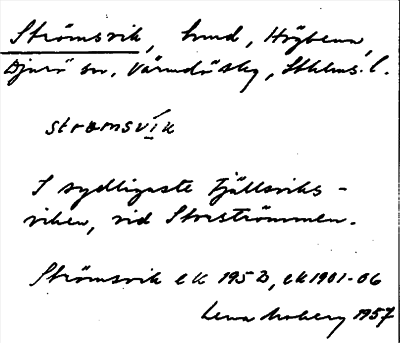 Strömsvik, hmd, Högbena,
Djurö sn, Värmdö skg, Sthlms l.
strømsvík
I sydligaste Fjällsviks-
viken, vid Storströmmen.
Strömsvik ek 1952, ek 1901-06
Lena Moberg 1957